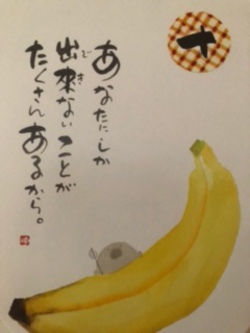 十
あなたにしか
出来ないことが
でき
たくさんあるから。